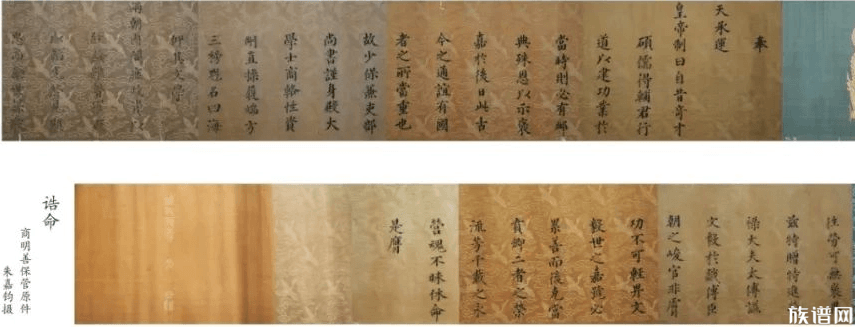 奉
天承運
皇帝制曰自昔奇才
碩儒得輔君行
道以建功業於
當時則必有卹
典殊恩以示褒
嘉於後日此古
今之通誼有國
者之所當重也
故少保兼吏部
尚書謹身殿大
學士商輅性資
剛直操履端方
三榜魁名四海
仰其文學
兩朝
勞可無褒
茲特贈特進
祿大夫太傅諡
文毅於戲傅臣
朝之峻官非膚
功不可輕畀文
毅世之嘉號必
累善而後克當
賁卿二者之榮
流芳千載之永
營魂不昧休命
是膺
诰命
商明善保管原件
朱嘉钧摄
族谱网